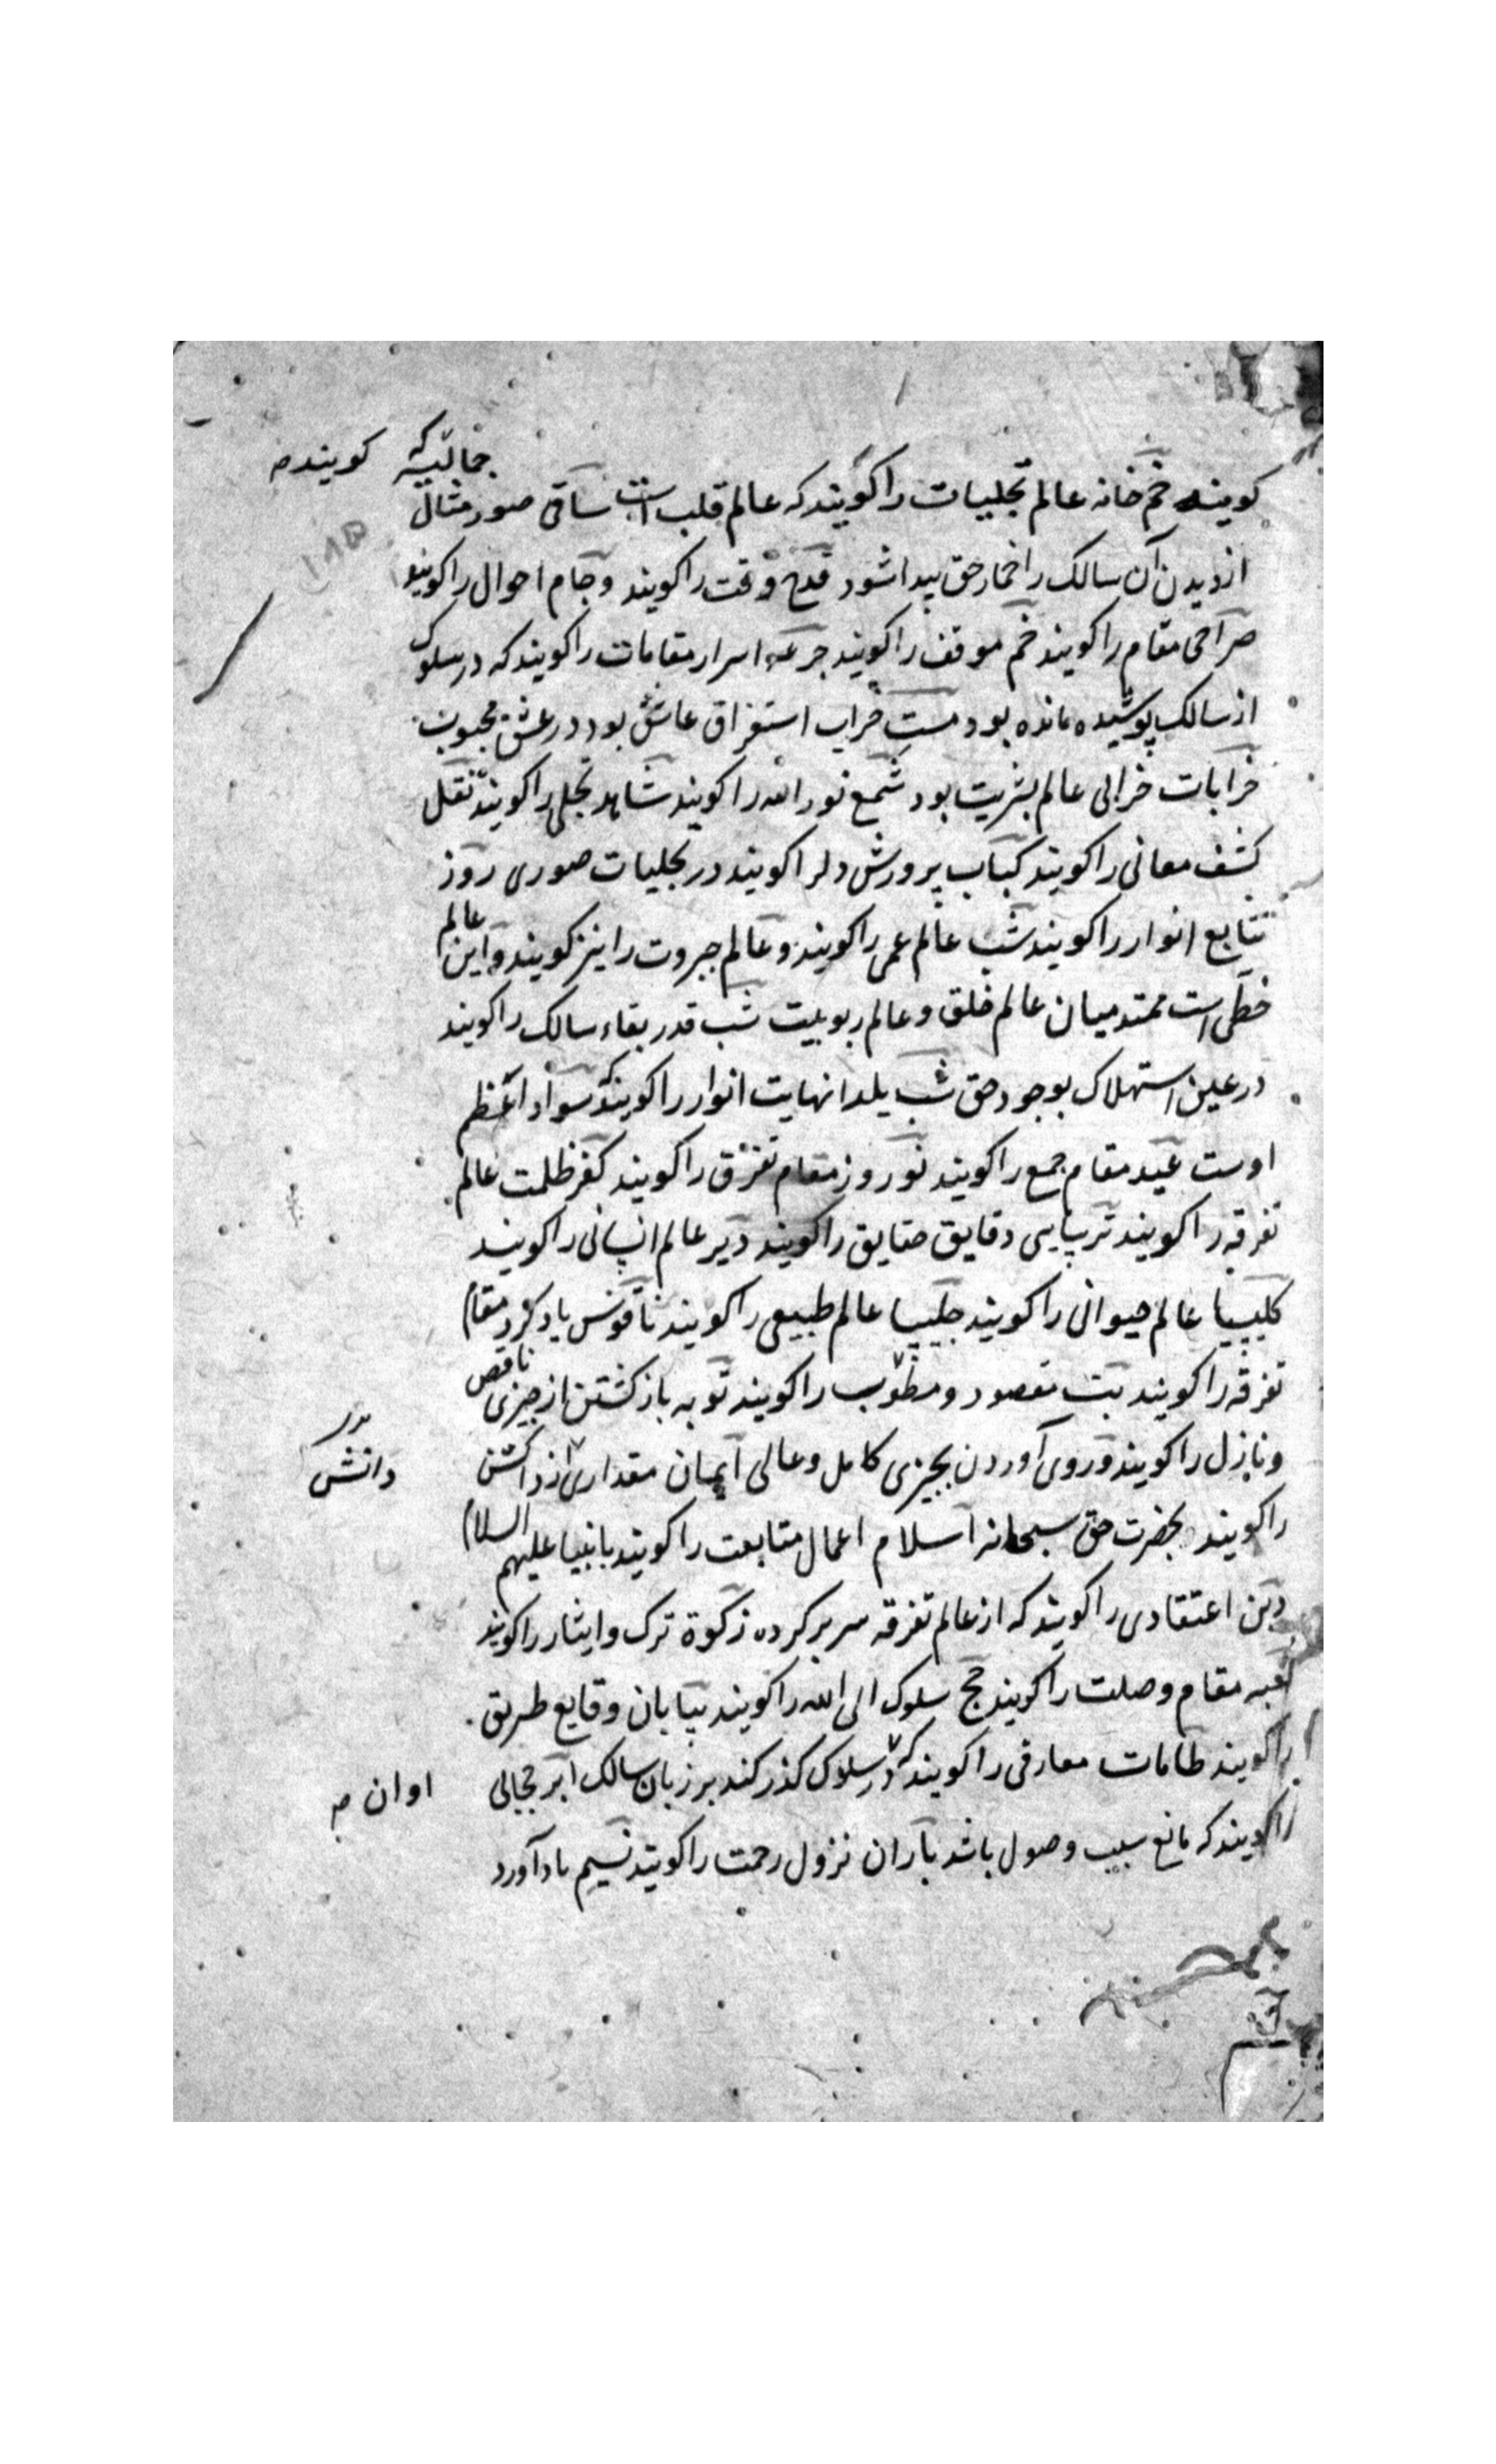 جمالیه که گویند صـ
کویند خم خانه عالم تجلیات را کویند که عالم قلب است ساقی صور مثال
از دیدن آن سالک را خمار حق پیدا شود قدح وقت را کویند و جام احوال را کویند
صراحی مقام را کویند خم موقف را کویند جرعه اسرار مقامات را کویند که در سلوک
از سالک پوشیده مانده بود مست خراب استغراق عاشق بود در عشق محبوب
خرابات خرابی عالم بشریت بود شمع نور الله را کویند شاهد تجلی را کویند نقل
کشف معانی را کویند کباب پرورش دل را کویند در تجلیات صوری روز
تتابع انوار را کویند شب عالم عمی را کویند و عالم جبروت را نیز کویند و این عالم
خطی است ممتد میان عالم خلق و عالم ربوبیت شب قدر بقاء سالک را کویند
در عین استهلاک بوجود حق شب یلدا نهایت انوار را کویند که سواد اعظم
اوست عید مقام جمع را کویند نوروز مقام تفرق را کویند کفر ظلمت عالم
تفرقه را کویند ترسایی دقایق حقایق را کویند دیر عالم انسانی را کویند
کلیسیا عالم حیوانی را کویند چلیپا عالم طبیعی را کویند ناقوس یاد کرد مقام
تفرقه را کویند بت مقصود و مطلوب را کویند توبه باز کشتن از چیزی ناقص
و نازل را کویند و روی آوردن بچیزی کامل و عالی ایمان مقداری از دانستن
دانش
را کویند بحضرت حق سبحانه اسلام اعمال متابعت را کویند بانبیا علیهم السلام
دین اعتقادی را کویند که از عالم تفرقه سر بر کرده زکوة ترک و ایثار را کویند
کعبه مقام وصلت را کویند حج سلوک الی الله را کویند بیابان وقایع طریق
را کویند طامات معارفی را کویند که در سلوک کذر کند بر زبان سالک ابر حجابی
اوان صـ
را کویند که مانع سبب وصول باشد باران نزول رحمت را کویند نسیم یاد آورد